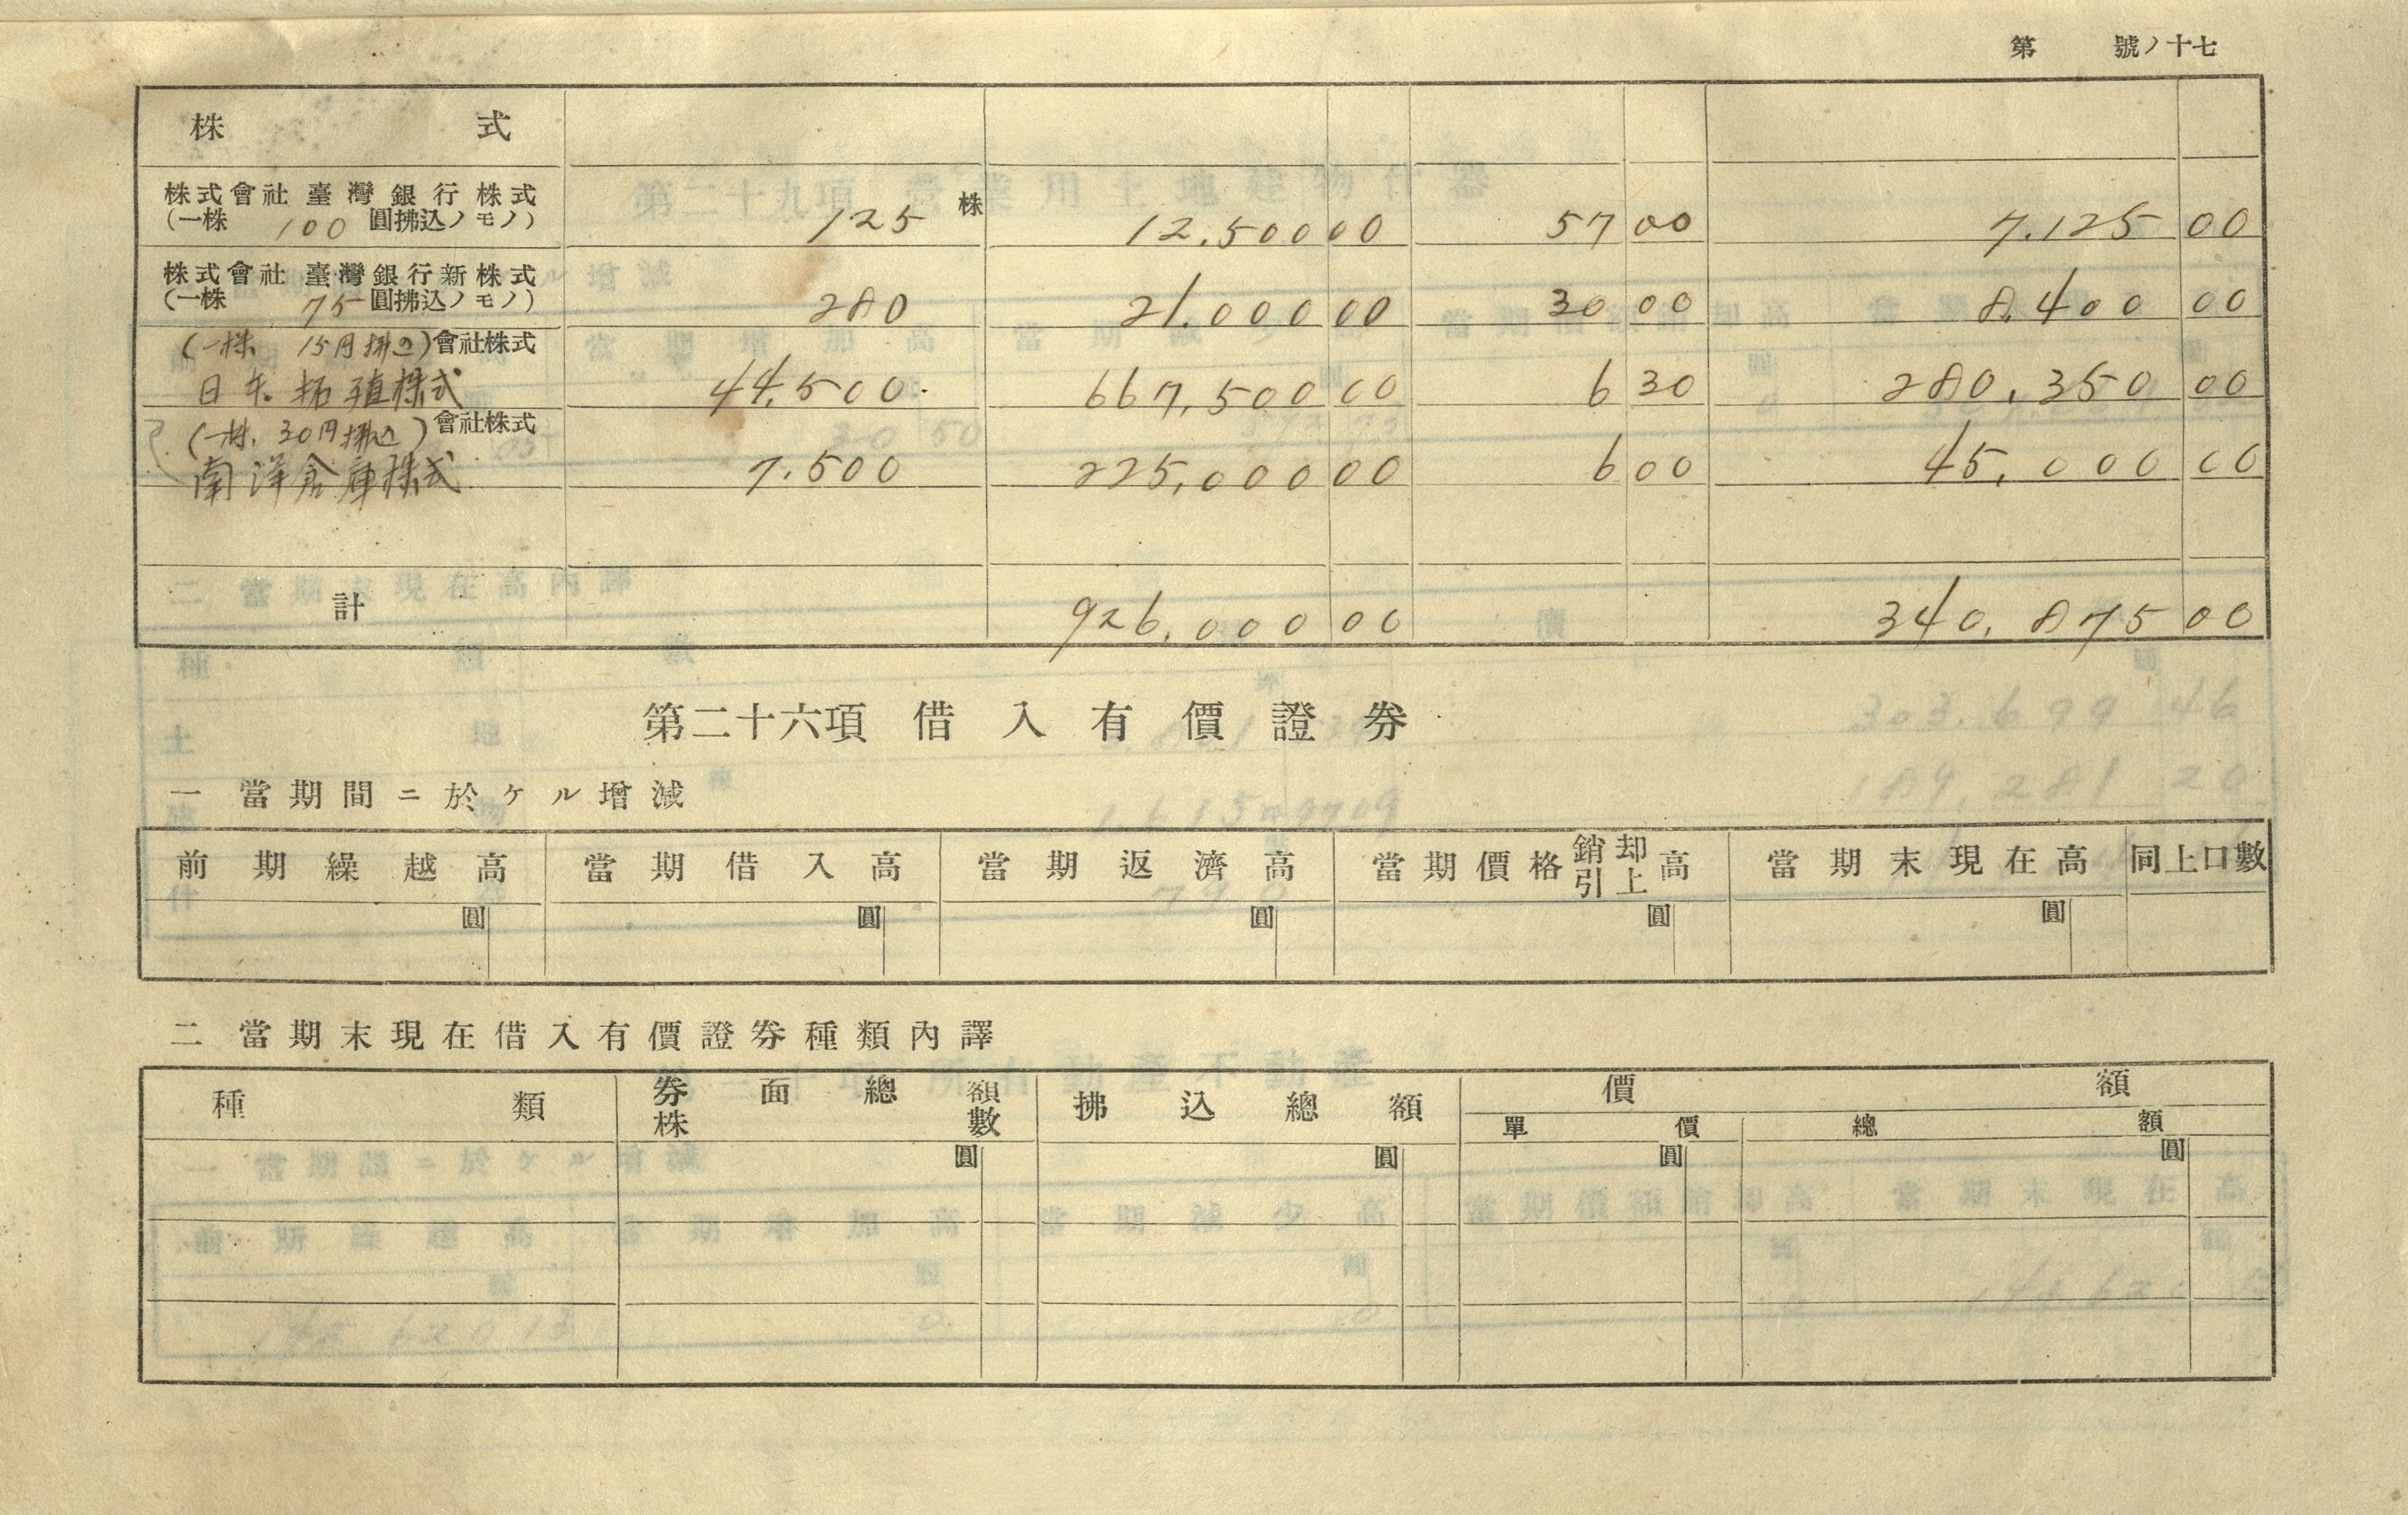 第 號ノ十七
株 式
株式會社臺灣銀行株式
(一株 100 圓拂込ノモノ) 125 株 12.500 00 57 00 7.125 00
株式會社臺灣銀行新株式
(一株 75 圓拂込ノモノ) 280 21.000 00 30 00 8.400 00
(一株 15円拂込)會社株式
日本拓殖株式 44.500. 667,500 00 6 30 280.350 00
(一株 30円拂込)會社株式
南洋倉庫株式 7.500 225,000 00 6 00 45,000 00
計 926,000 00 340,875 00
第二十六項 借入有價證券
一 當期間ニ於ケル增減
前期繰越高 當期借入高 當期返濟高 當期價格銷却引上高 當期末現在高 同上口數
圓 圓 圓 圓 圓
二 當期末現在借入有價證券種類內譯
種類 券面總額 株數 拂込總額 價額
單價 總額
圓 圓 圓 圓